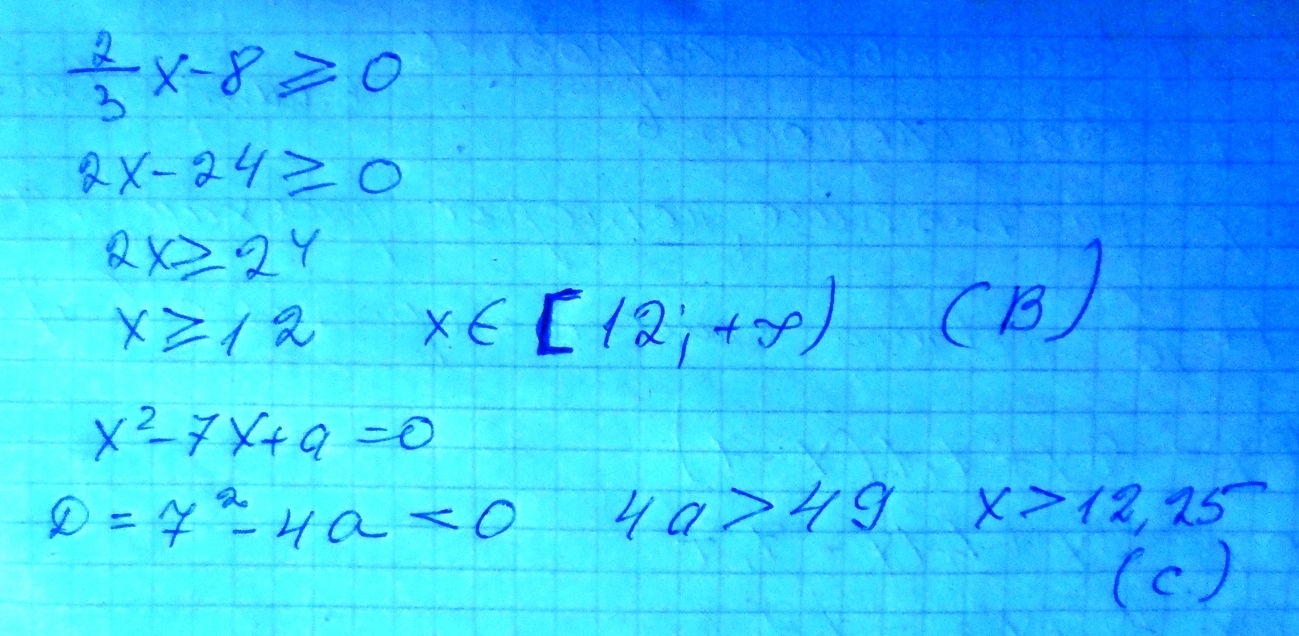 2/3 x - 8 ⩾ 0
2x - 24 ≥ 0
2x ≥ 24
x ≥ 12 x ∈ [12; +∞) (B)
x² - 7x + a = 0
D = 7² - 4a < 0 4a > 49 x > 12,25
(c)